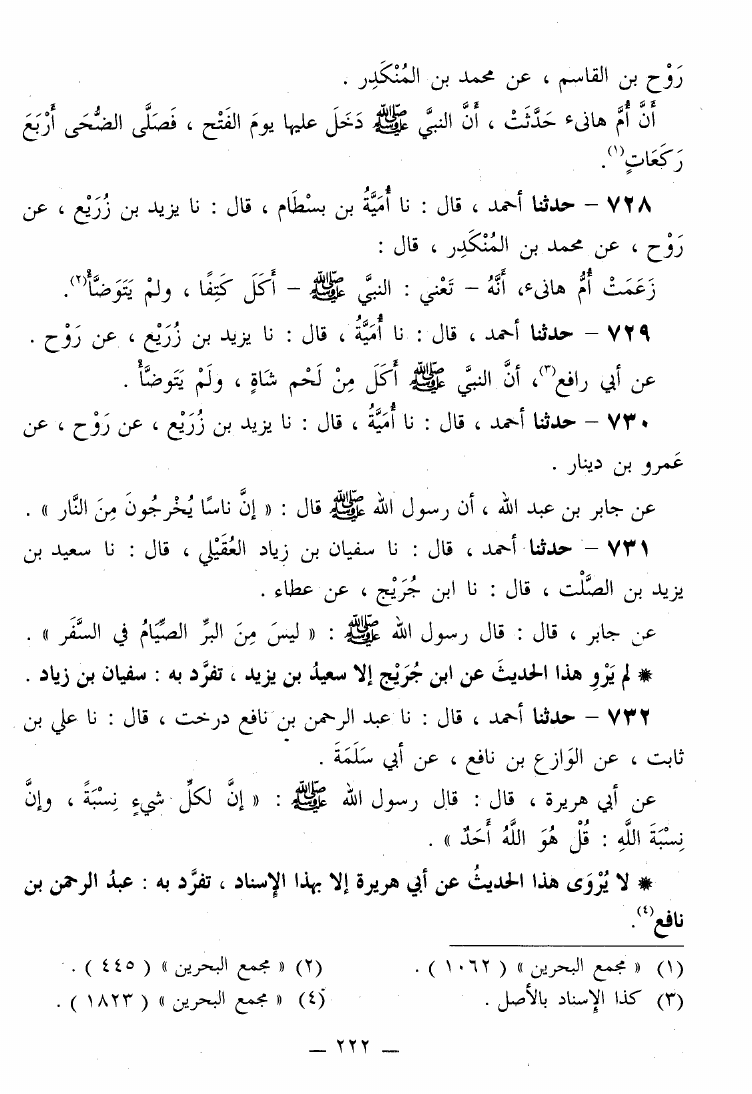 رَوْح بن القاسم ، عن محمد بن المُنْكَدِر .
أَنَّ أُمَّ هانىء حَدَّثَتْ ، أَنَّ النبيَّ ﷺ دَخَلَ عليها يومَ الفَتْح ، فَصَلَّى الضُّحَى أَرْبَعَ
رَكَعَاتٍ(١).
٧٢٨ – حدثنا أحمد ، قال : نا أُمَيَّةُ بن بسْطَام ، قال : نا يزيد بن زُرَيْع ، عن
رَوْح ، عن محمد بن المُنْكَدِر ، قال :
زَعَمَتْ أُمُّ هانىء، أَنَّهُ – تَعْني : النبيَّ ﷺ – أَكَلَ كَتِفًا ، ولمْ يَتَوَضَّأْ(٢).
٧٢٩ – حدثنا أحمد ، قال : نا أُمَيَّةُ ، قال : نا يزيد بن زُرَيْع ، عن رَوْح .
عن أبي رافع(٣)، أنَّ النبيَّ ﷺ أَكَلَ مِنْ لَحْم شَاةٍ ، ولَمْ يَتَوضَّأْ .
٧٣٠ – حدثنا أحمد ، قال : نا أُمَيَّةُ ، قال : نا يزيد بن زُرَيْع ، عن رَوْح ، عن
عَمرو بن دينار .
عن جابر بن عبد الله ، أن رسول الله ﷺ قال : « إنَّ ناسًا يُخْرجُونَ مِنَ النَّار » .
٧٣١ – حدثنا أحمد ، قال : نا سفيان بن زياد العُقَيْلي ، قال : نا سعيد بن
يزيد بن الصَّلْت ، قال : نا ابن جُرَيْج ، عن عطاء .
عن جابر ، قال : قال رسول الله ﷺ : « ليسَ مِنَ البرِّ الصِّيَامُ في السَّفَر » .
* لم يَرْوِ هذا الحديثَ عن ابن جُرَيْج إلا سعيدُ بن يزيد ، تفرَّد به : سفيان بن زياد .
٧٣٢ – حدثنا أحمد ، قال : نا عبد الرحمن بن نافع درخت ، قال : نا علي بن
ثابت ، عن الوَازع بن نافع ، عن أبي سَلَمَةَ .
عن أبي هريرة ، قال : قال رسول الله ﷺ : « إنَّ لكلِّ شيءٍ نِسْبَةً ، وإنَّ
نِسْبَةَ اللَّهِ : قُلْ هُوَ اللَّهُ أَحَدٌ » .
* لا يُرْوَى هذا الحديثُ عن أبي هريرة إلا بهذا الإسناد ، تفرَّد به : عبدُ الرحمن بن
نافع(٤).
(١) « مجمع البحرين » ( ١٠٦٢ ) . (٢) « مجمع البحرين » ( ٤٤٥ ) .
(٣) كذا الإسناد بالأصل . (٤) « مجمع البحرين » ( ١٨٢٣ ) .
– ٢٢٢ –